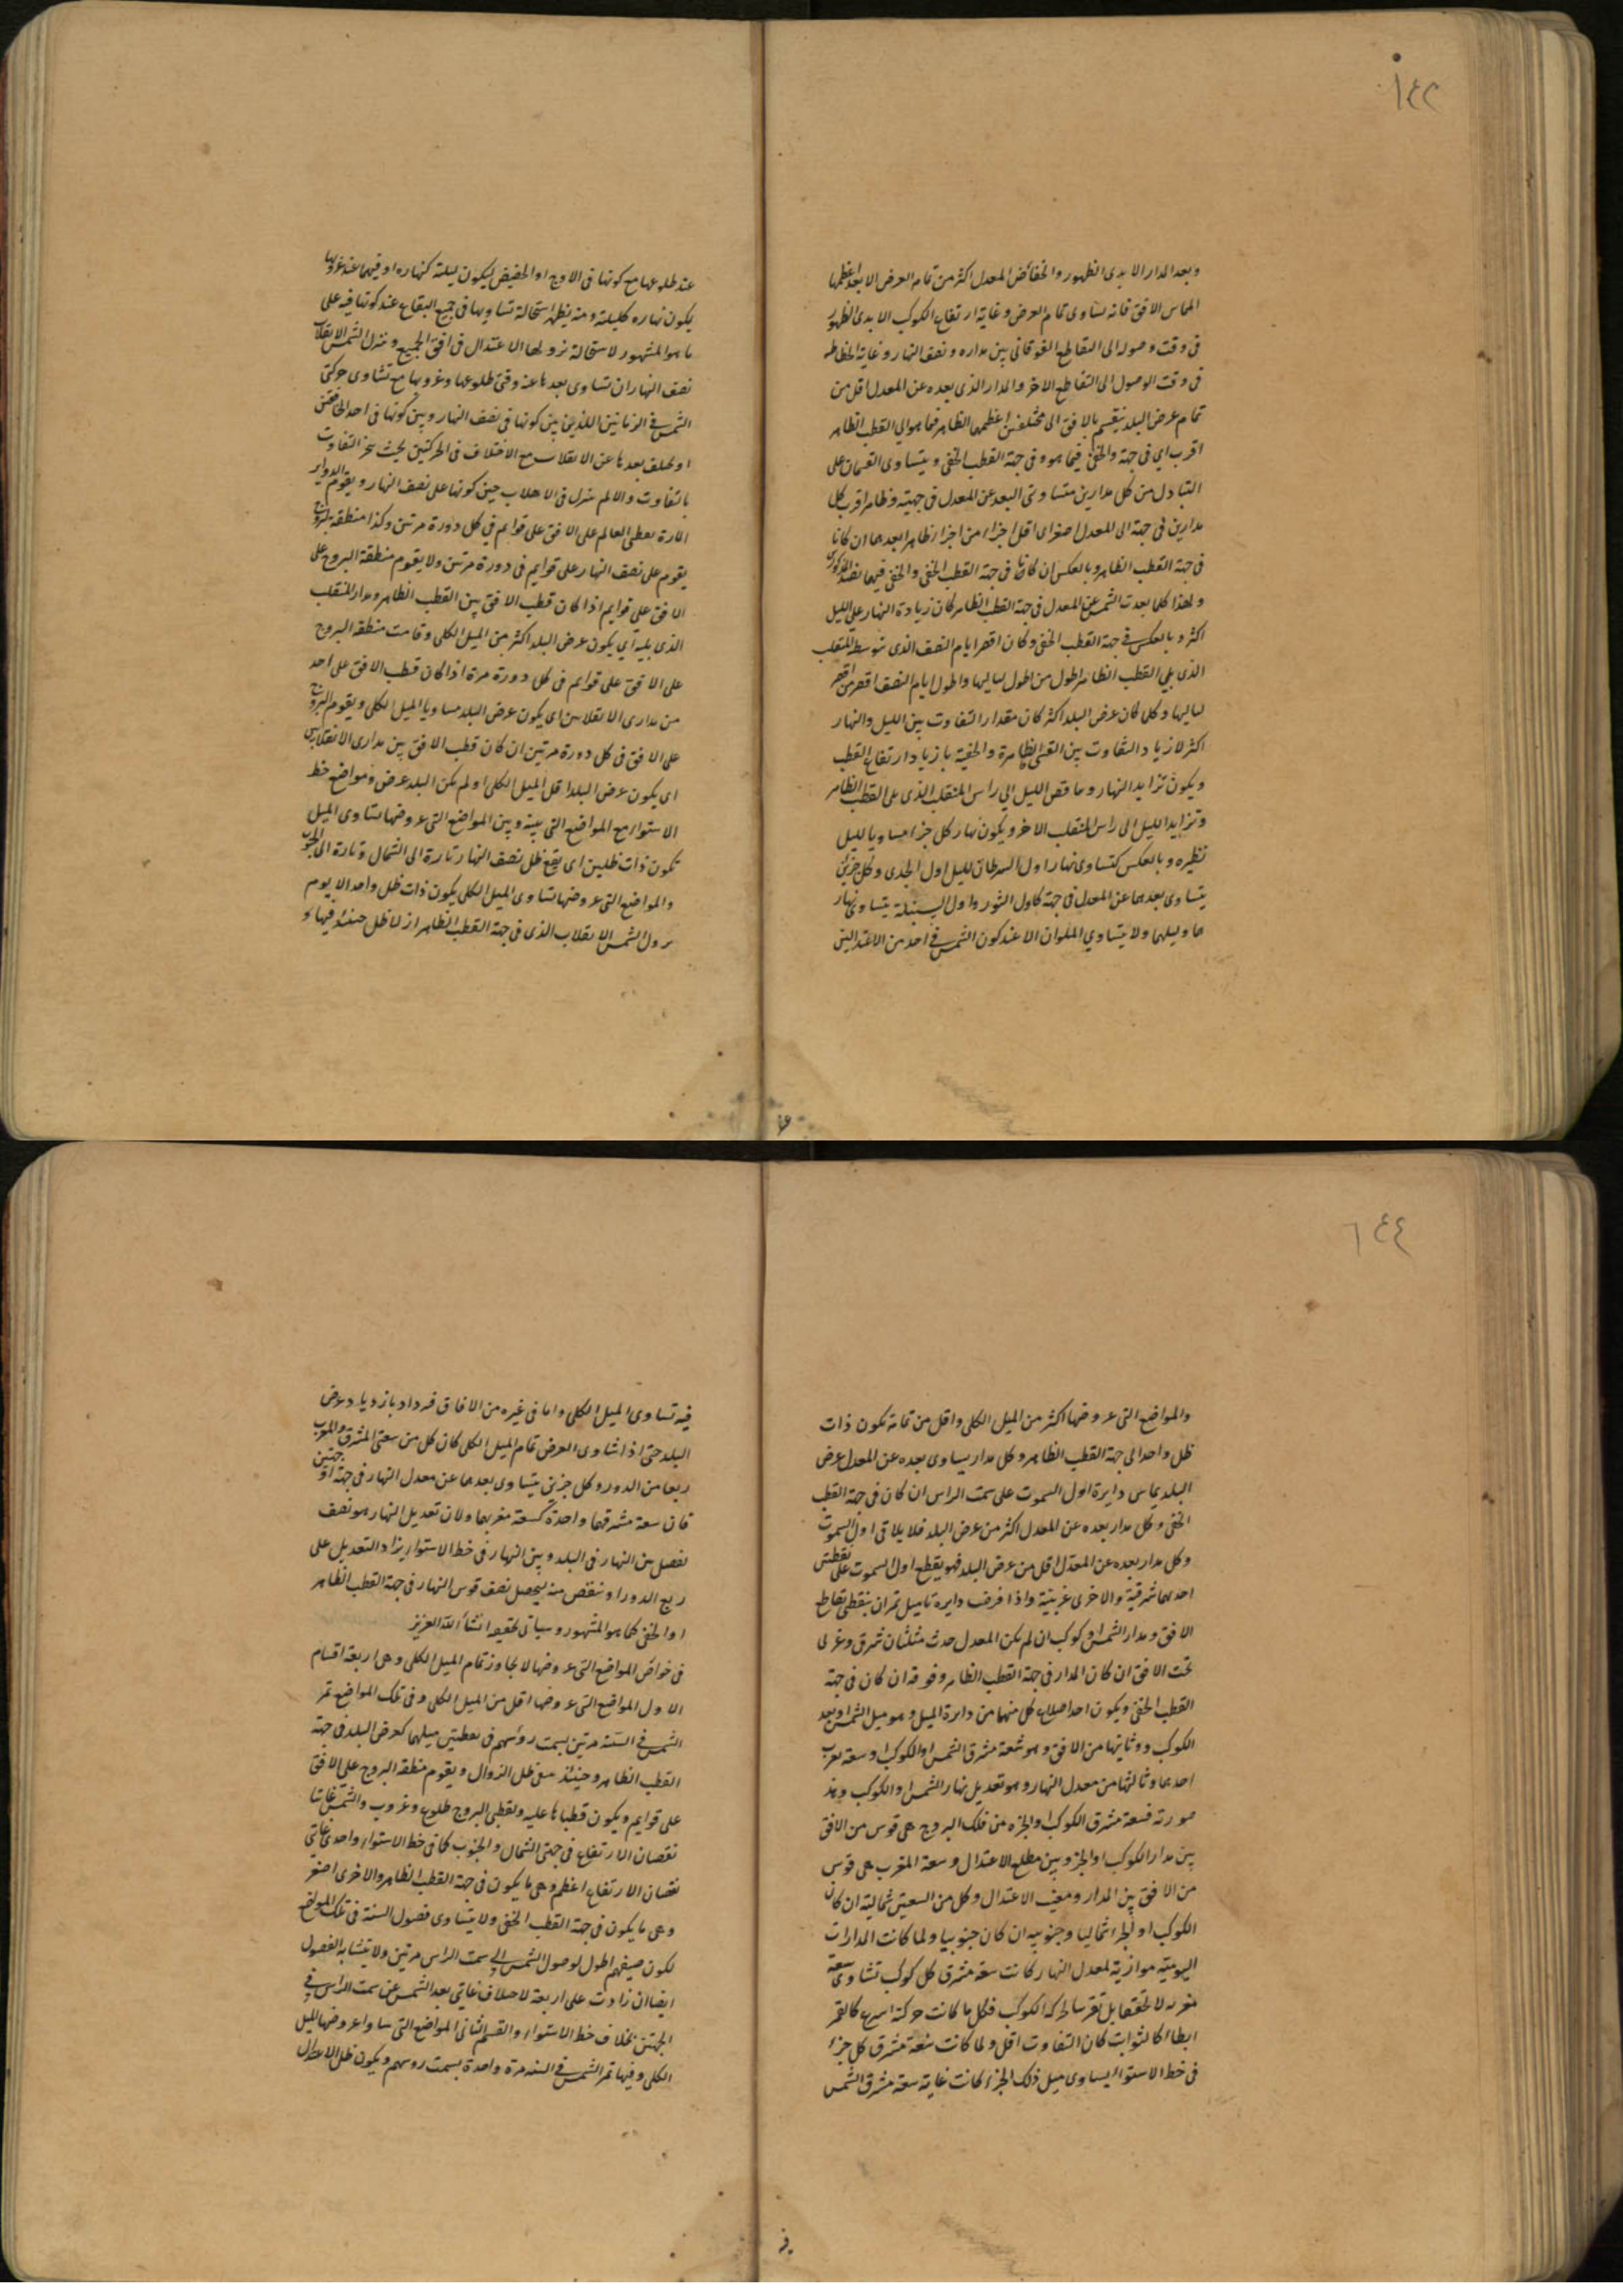 ١٤٣
وبعد المدار الابدى الظهور والخفا عن المعدل اكثر من تمام العرض الا بعد اعظمها
المماس الافق فانه يساوى تمام العرض وغاية ارتفاع الكوكب الابدى الظهور
فى وقت وصوله الى التقاطع الفوقانى بين مداره ونصف النهار وغاية انحطاطه
فى وقت الوصول الى التقاطع الاخر والمدار الذى بعده عن المعدل اقل من
تمام عرض البلد ينقسم بالافق الى مختلفين اعظمهما الظاهر فيما هو الى القطب الظاهر
اقرب اى فى جهة والخفى فيما هو فى جهة القطب الخفى ويتساوى القسمان على
التبادل من كل مدارين متساوى البعد عن المعدل فى جهتيه وظاهر اقرب كل
مدارين فى جهة الى المعدل اصغر اى اقل اجزاء من اجزاء ظاهر ابعدهما ان كانا
فى جهة القطب الظاهر وبالعكس ان كانا فى جهة القطب الخفى والخفى فيهما بضد المذكور
ولهذا كلما بعدت الشمس عن المعدل فى جهة القطب الظاهر كان زيادة النهار على الليل
اكثر وبالعكس فى جهة القطب الخفى وكان اقصر ايام النصف الذى يتوسطه المنقلب
الذى يلى القطب الظاهر اطول من اطول لياليها واطول ايام النصف اقصر من اقصر
لياليها وكل كان عرض البلد اكثر كان مقدار التفاوت بين الليل والنهار
اكثر لازياد التفاوت بين القسى الظاهرة والخفية بازياد ارتفاع القطب
ويكون تزايد النهار وتناقص الليل الى راس المنقلب الذى يلى القطب الظاهر
وتزايد الليل الى راس المنقلب الاخر ويكون نهار كل جزء مساويا لليل
نظيره وبالعكس كتساوى نهار اول السرطان لليل اول الجدى وكل جزئين
يتساوى بعدهما عن المعدل فى جهة كاول الثور واول السنبلة يتساوى نهار
هما وليلهما ولا يتساوى الملوان الا عند كون الشمس فى احد من الاعتدالين
عند طلوعها مع كونها فى الاوج او الحضيض ليكون ليلته كنهاره او فيهما عند غروبها
يكون نهاره كليلته ومنه يظهر استحالة تساويهما فى جميع البقاع عند كونها فيه على
ما هو المشهور لاستحالة نزولها الاعتدال فى افق الجميع ومنزل الشمس الانقلاب
نصف النهار ان تساوى بعدها عنه وقتى طلوعها وغروبها مع تساوى حركتى
الشمس فى الزمانين اللذين بين كونها فى نصف النهار وبين كونها فى احد الخافقين
او يختلف بعدها عن الانقلاب مع الاختلاف فى الحركتين بحيث
بالتفاوت والا لم ينزل فى الانقلاب حين كونها على نصف النهار ويقوم الدواير
المارة بقطبى العالم على الافق على قوايم فى كل دورة مرتين وكذا منطقة البروج
يقوم على نصف النهار على قوايم فى دورة مرتين ولا يقوم منطقة البروج على
الافق على قوايم اذا كان قطب الافق بين القطب الظاهر ومدار المنقلب
الذى يليه اى يكون عرض البلد اكثر من الميل الكلى وقامت منطقة البروج
على الافق على قوايم فى كل دورة مرة اذا كان قطب الافق على احد
من مدارى الانقلابين اى يكون عرض البلد مساويا للميل الكلى ويقوم البروج
على الافق فى كل دورة مرتين ان كان قطب الافق بين مدارى الانقلابين
اى يكون عرض البلد اقل الميل الكلى او لم يكن البلد عرض ومواضع خط
الاستوا مع المواضع التى بينه وبين المواضع التى عروضها تساوى الميل
تكون ذات ظلين اى يقع ظل نصف النهار تارة الى الشمال وتارة الى الجنوب
والمواضع التى عروضها تساوى الميل الكلى يكون ذات ظل واحد الا يوم
نزول الشمس الانقلاب الذى فى جهة القطب الظاهر اذ لا ظل حينئذ فيها و
١٤٤
والمواضع التى عروضها اكثر من الميل الكلى واقل من تمامه تكون ذات
ظل واحد الى جهة القطب الظاهر وكل مدار يساوى بعده عن المعدل عرض
البلد يماس دايرة اول السموت على سمت الراس ان كان فى جهة القطب
الخفى وكل مدار بعده عن المعدل اكثر من عرض البلد فلا يلاقى اول السموت
وكل مدار بعده عن المعدل اقل من عرض البلد فهو يقطع اول السموت على نقطتين
احدهما شرقية والاخرى غربية واذا فرضت دايرة تا ميل تمران بنقطتى تقاطع
الافق ومدار الشمس او كوكب ان لم يكن المعدل حدث مثلثان شرقى وغربى
تحت الافق ان كان المدار فى جهة القطب الظاهر وفوقه ان كان فى جهة
القطب الخفى ويكون احد اضلاع كل منهما من دايرة الميل وهو ميل الشمس او بعد
الكوكب وثانيها من الافق وهو سعة مشرق الشمس او الكوكب او سعة مغرب
احدهما وثالثها من معدل النهار وهو تعديل نهار الشمس او الكوكب وهذه
صورته فسعة مشرق الكوكب او الجزء من فلك البروج هى قوس من الافق
بين مدار الكوكب او الجزء وبين مطلع الاعتدال وسعة المغرب هى قوس
من الافق بين المدار ومغيب الاعتدال وكل من السعتين شمالية ان كان
الكوكب او الجزء شماليا وجنوبية ان كان جنوبيا ولما كانت المدارات
اليومية موازية لمعدل النهار كانت سعة مشرق كل كوكب تساوى سعة
مغربه لا تحقيقا بل تقريبا لحركة الكوكب فكل ما كانت حركته اسرع كالقمر
ابطاء كالثوابت كان التفاوت اقل ولما كانت سعة مشرق كل جزء
فى خط الاستواء يساوى ميل ذلك الجزء كانت غاية سعة مشرق الشمس
فيه تساوى الميل الكلى واما فى غيره من الافاق فيزداد بازدياد عرض
البلد حتى اذا تساوى العرض تمام الميل الكلى كان كل من سعتى المشرق والمغرب
ربعا من الدور وكل جزئين يتساوى بعدهما عن معدل النهار فى جهة او جهتين
فان سعة مشرقهما واحدة كسعة مغربهما ولان تعديل النهار هو نصف
الفضل بين النهار فى البلد وبين النهار فى خط الاستوا يزاد التعديل على
ربع الدور او ينقص منه ليحصل نصف قوس النهار فى جهة القطب الظاهر
او الخفى كما هو المشهور وسياتى تحقيقه انشاء الله العزيز
فى خواص المواضع التى عروضها لا تجاوز تمام الميل الكلى وهى اربعة اقسام
الاول المواضع التى عروضها اقل من الميل الكلى وفى تلك المواضع تمر
الشمس فى السنة مرتين بسمت رؤسهم فى نقطتين ميلهما كعرض البلد فى جهة
القطب الظاهر وحينئذ ظل الزوال ويقوم منطقة البروج على الافق
على قوايم ويكون قطباها عليه ولقطبى البروج طلوع وغروب وللشمس غايتا
نقصان الارتفاع فى جهتى الشمال والجنوب كما فى خط الاستواء واحدى غايتى
نقصان الارتفاع اعظم وهى ما يكون فى جهة القطب الظاهر والاخرى اصغر
وهى ما يكون فى جهة القطب الخفى ولا يتساوى فصول السنة فى تلك المواضع
لكون صيفهم اطول لوصول الشمس الى سمت الراس مرتين ولا يتشابه الفصول
ايضا ان زادت على اربعة لاختلاف غايتى بعد الشمس عن سمت الراس فى
الجهتين بخلاف خط الاستواء والقسم الثانى المواضع التى ساوا عروضها الميل
الكلى وفيها تمر الشمس فى السنة مرة واحدة بسمت رؤسهم ويكون ظل الاعتدال